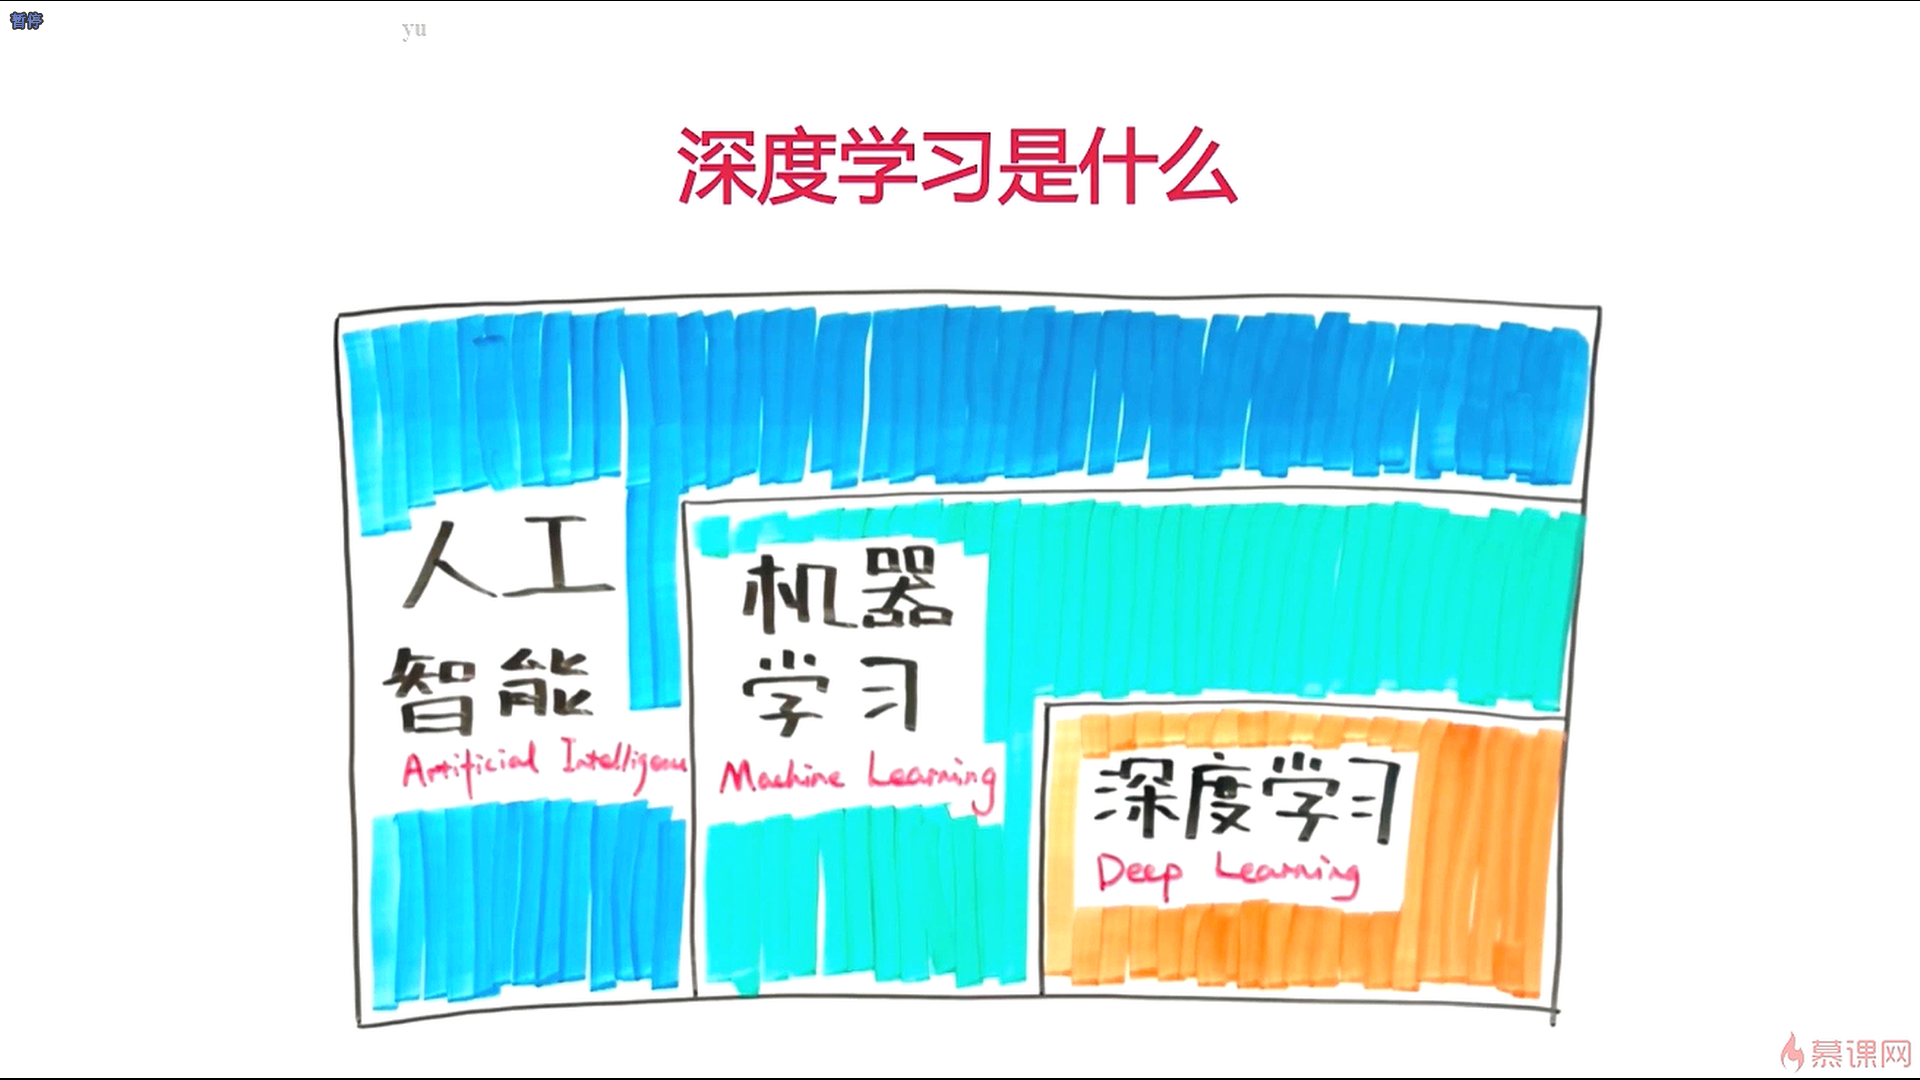 暂停
yu
深度学习是什么
人工
智能
Artificial Intelligence
机器
学习
Machine Learning
深度学习
Deep Learning
慕课网